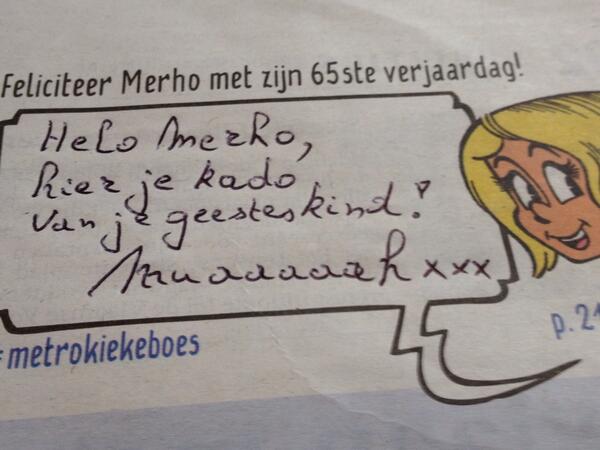 Feliciteer Merho met zijn 65ste verjaardag!
Helo Merho,
hier je kado
van je geesteskind!
Mmuaaaaaah xxx
p. 21
#metrokiekeboes